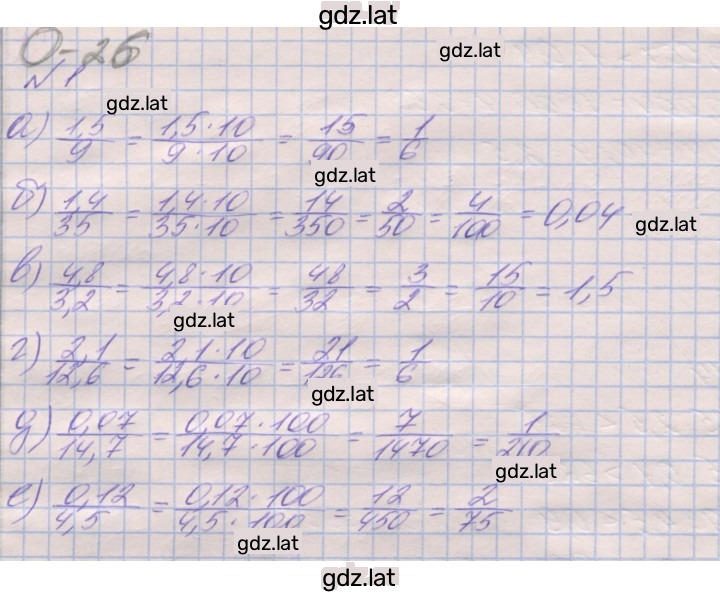 gdz.lat
О-26
gdz.lat
№1
gdz.lat
а) 1,5/9 = 1,5·10/9·10 = 15/90 = 1/6
gdz.lat
б) 1,4/35 = 1,4·10/35·10 = 14/350 = 2/50 = 4/100 = 0,04
gdz.lat
в) 4,8/3,2 = 4,8·10/3,2·10 = 48/32 = 3/2 = 15/10 = 1,5
gdz.lat
г) 2,1/12,6 = 2,1·10/12,6·10 = 21/126 = 1/6
gdz.lat
д) 0,07/14,7 = 0,07·100/14,7·100 = 7/1470 = 1/210
gdz.lat
е) 0,12/4,5 = 0,12·100/4,5·100 = 12/450 = 2/75
gdz.lat
gdz.lat